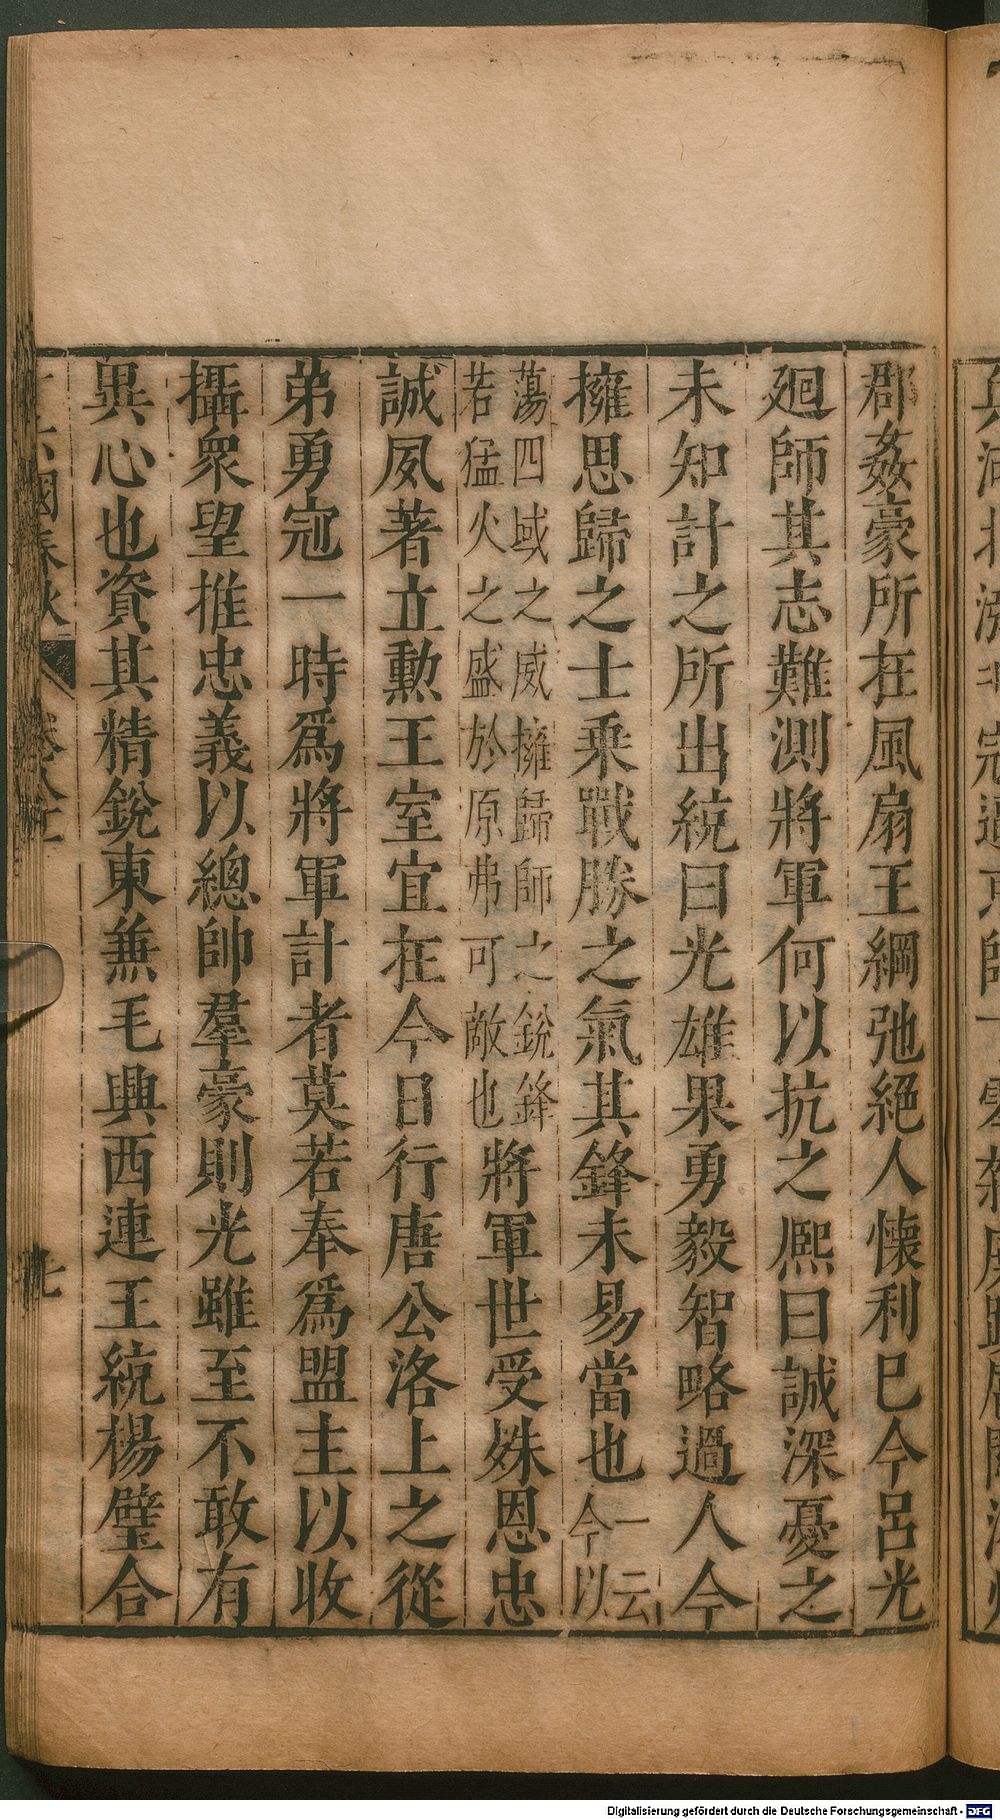 郡姦豪所在風扇王綱弛絕人懷利巳今呂光
廻師其志難測將軍何以抗之熈曰誠深憂之
未知計之所出統曰光雄果勇毅智略過人今
擁思歸之士乗戰勝之氣其鋒未易當也一云今以
蕩四域之威擁歸師之銳鋒
若猛火之盛於原弗可敵也
將軍世受姝恩忠
誠夙著立勲王室宜在今日行唐公洛上之從
弟勇冠一時爲將軍計者莫若奉爲盟主以收
攝衆望推忠義以總帥羣豪則光雖至不敢有
異心也資其精銳東兼毛興西連王統楊璧合
國春秋
Digitalisierung gefördert durch die Deutsche Forschungsgemeinschaft - DFG